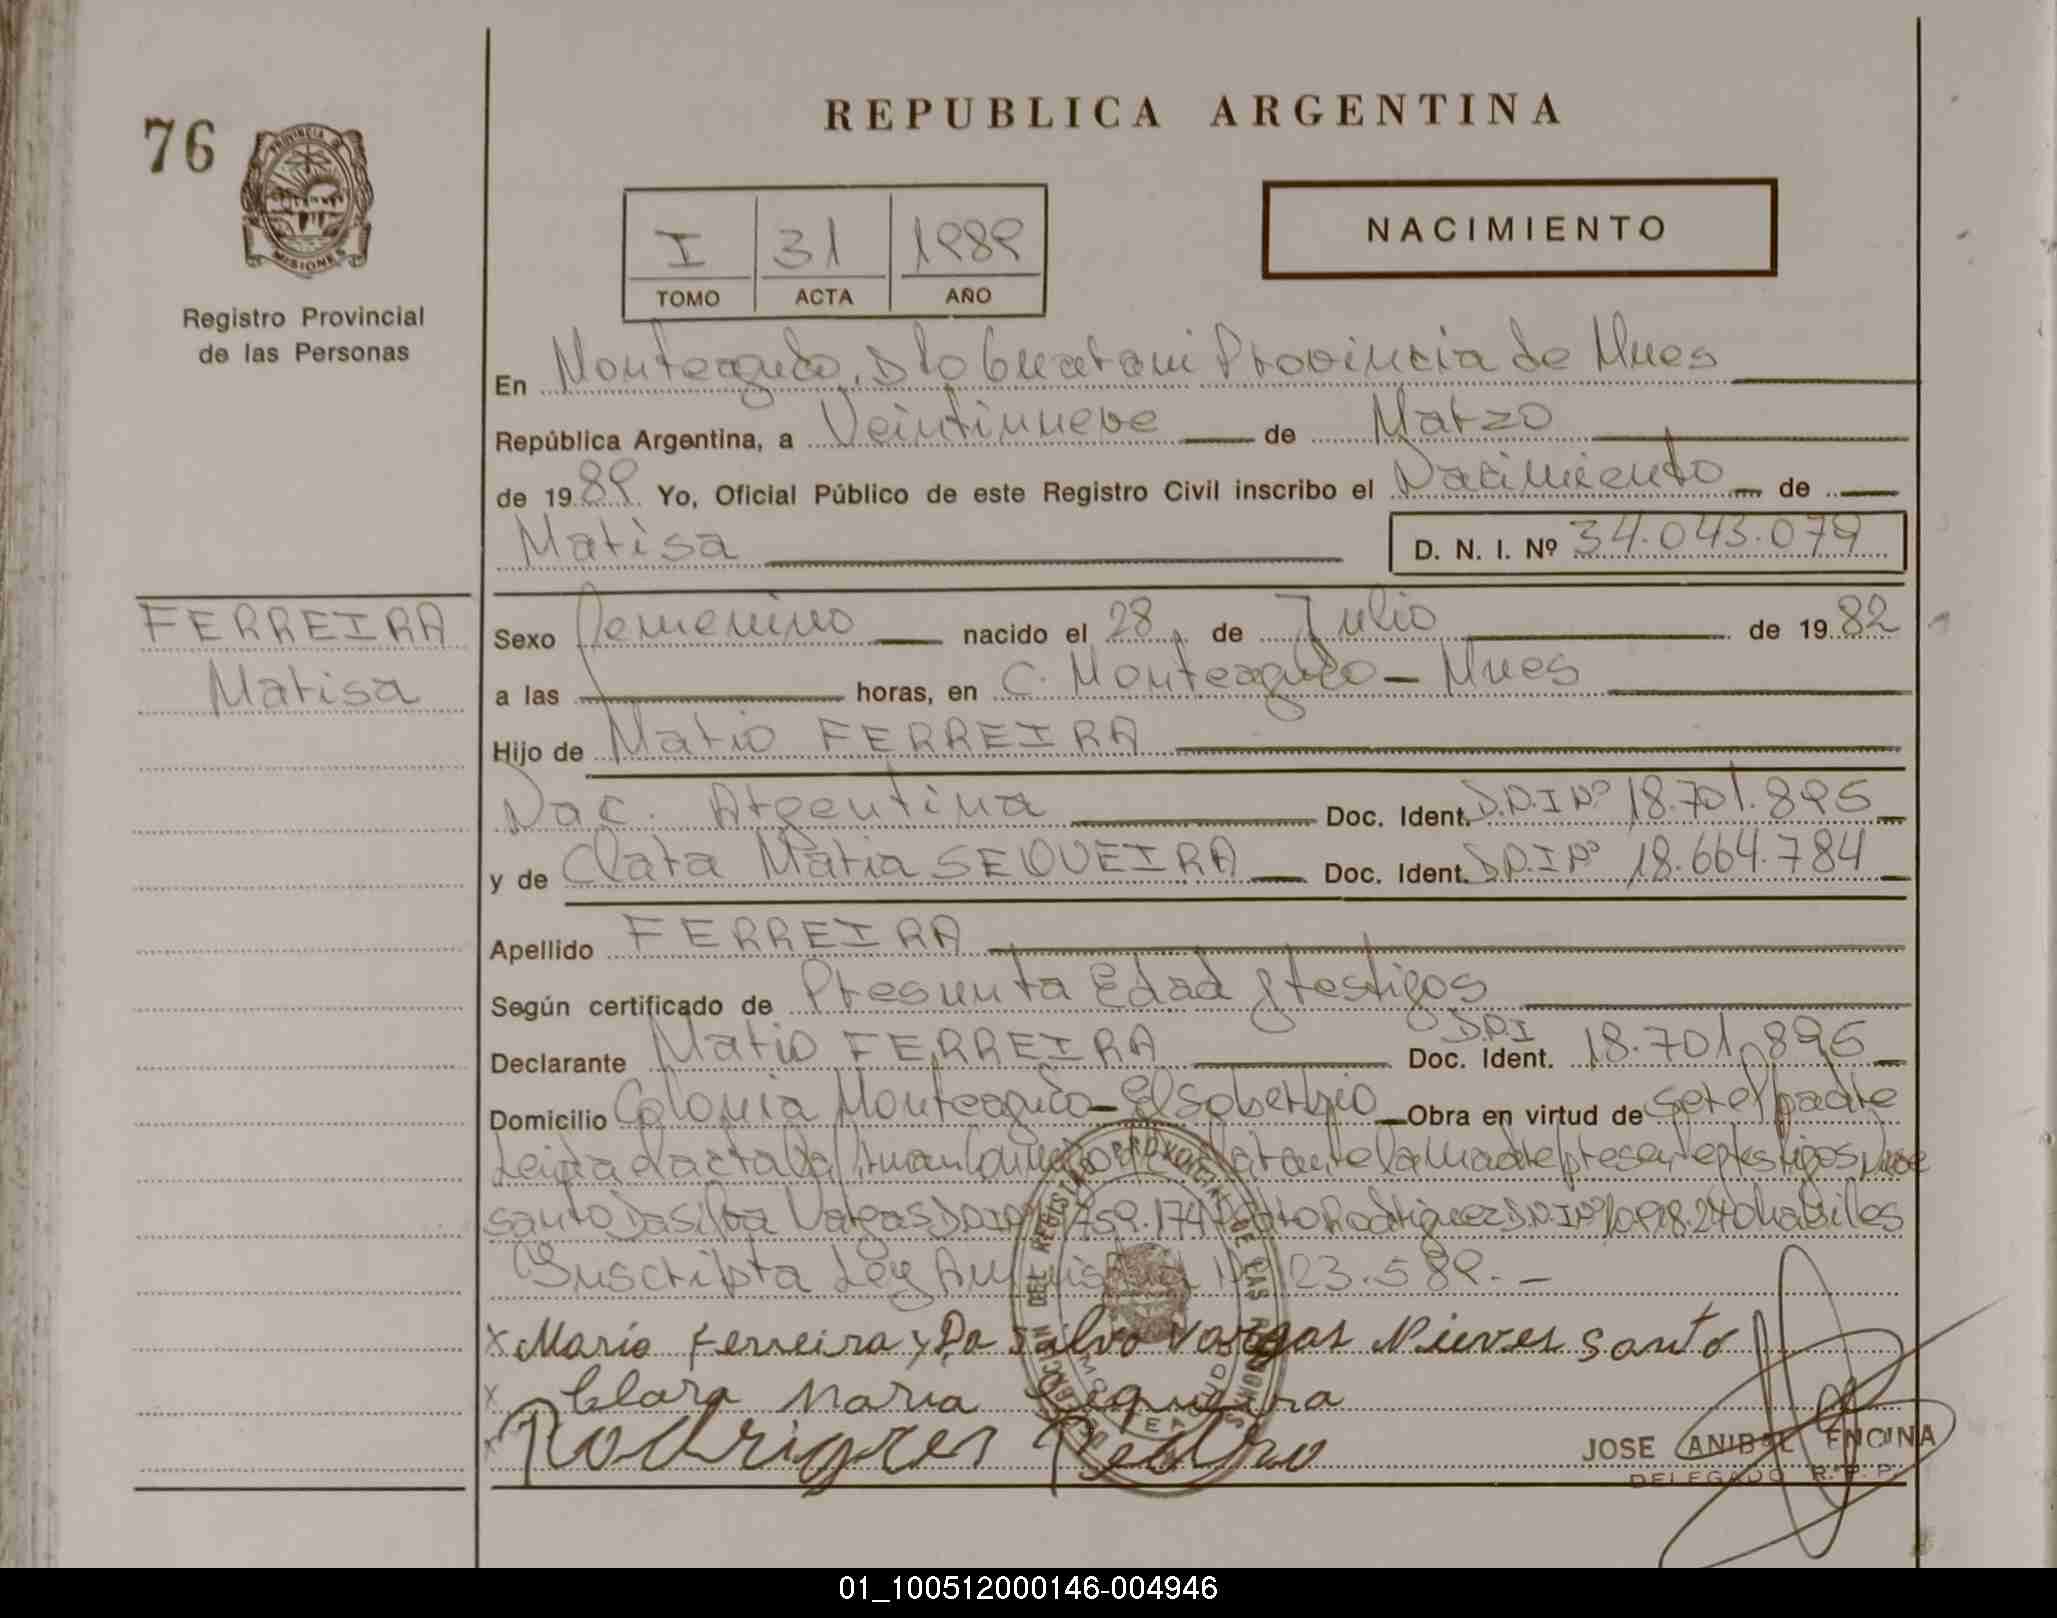 REPUBLICA ARGENTINA
76
PROVINCIA DE
MISIONES
Registro Provincial
de las Personas
I 31 1989
TOMO ACTA AÑO
NACIMIENTO
En Monteagudo, Dto Guarani Provincia de Mnes
República Argentina, a Veintinueve de Marzo
de 1989 Yo, Oficial Público de este Registro Civil inscribo el Nacimiento de
Marisa
D. N. I. Nº 34.043.079
FERREIRA
Marisa
Sexo femenino nacido el 28 de Julio de 1982
a las horas, en C. Monteagudo - Mnes
Hijo de Mario FERREIRA
Nac. Argentina Doc. Ident. D.N.I Nº 18.701.896
y de Clara Maria SEQUEIRA Doc. Ident. D.N.I Nº 18.664.784
Apellido FERREIRA
Según certificado de Presunta Edad y testigos
Declarante Mario FERREIRA Doc. Ident. D.N.I 18.701.896
Domicilio Colonia Monteagudo - El soberbio Obra en virtud de ser el padre
Leida el acta la firman conmigo el la madre presente testigos
santo Da silva Vargas D.N.I 759.174 Rodriguez D.N.I Nº habiles
Inscripta Ley Amnistia Nº 23.589.-
x Mario Ferreira y Da Silva Vargas Nieves Santo
x Clara Maria Sequeira
x Rodrigues Pedro
JOSE ANIBAL ENCINA
DELEGADO R. P. P.
DIRECCION DEL REGISTRO PROVINCIAL DE LAS PERSONAS
MONTEAGUDO
01_100512000146-004946